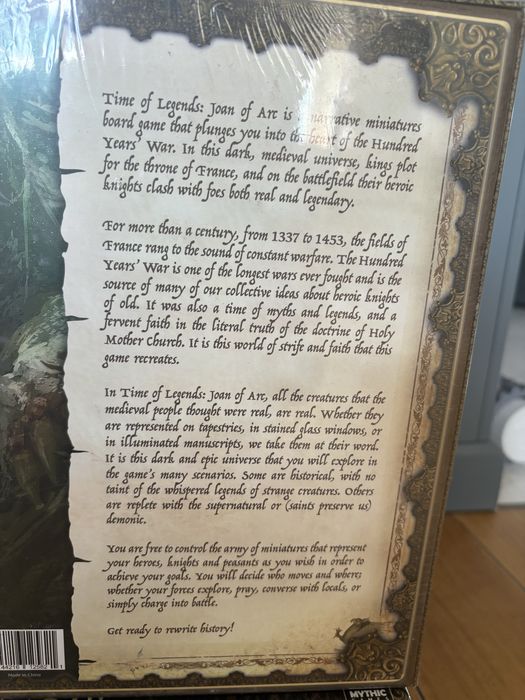 Time of Legends: Joan of Arc is a narrative miniatures
board game that plunges you into the heart of the Hundred
Years' War. In this dark, medieval universe, kings plot
for the throne of France, and on the battlefield their heroic
knights clash with foes both real and legendary.
For more than a century, from 1337 to 1453, the fields of
France rang to the sound of constant warfare. The Hundred
Years' War is one of the longest wars ever fought and is the
source of many of our collective ideas about heroic knights
of old. It was also a time of myths and legends, and a
fervent faith in the literal truth of the doctrine of Holy
Mother Church. It is this world of strife and faith that this
game recreates.
In Time of Legends: Joan of Arc, all the creatures that the
medieval people thought were real, are real. Whether they
are represented on tapestries, in stained glass windows, or
in illuminated manuscripts, we take them at their word.
It is this dark and epic universe that you will explore in
the game's many scenarios. Some are historical, with no
taint of the whispered legends of strange creatures. Others
are replete with the supernatural or (saints preserve us)
demonic.
You are free to control the army of miniatures that represent
your heroes, knights and peasants as you wish in order to
achieve your goals. You will decide who moves and where;
whether your forces explore, pray, converse with locals, or
simply charge into battle.
Get ready to rewrite history!
44216 12562 1
Made in China
MYTHIC